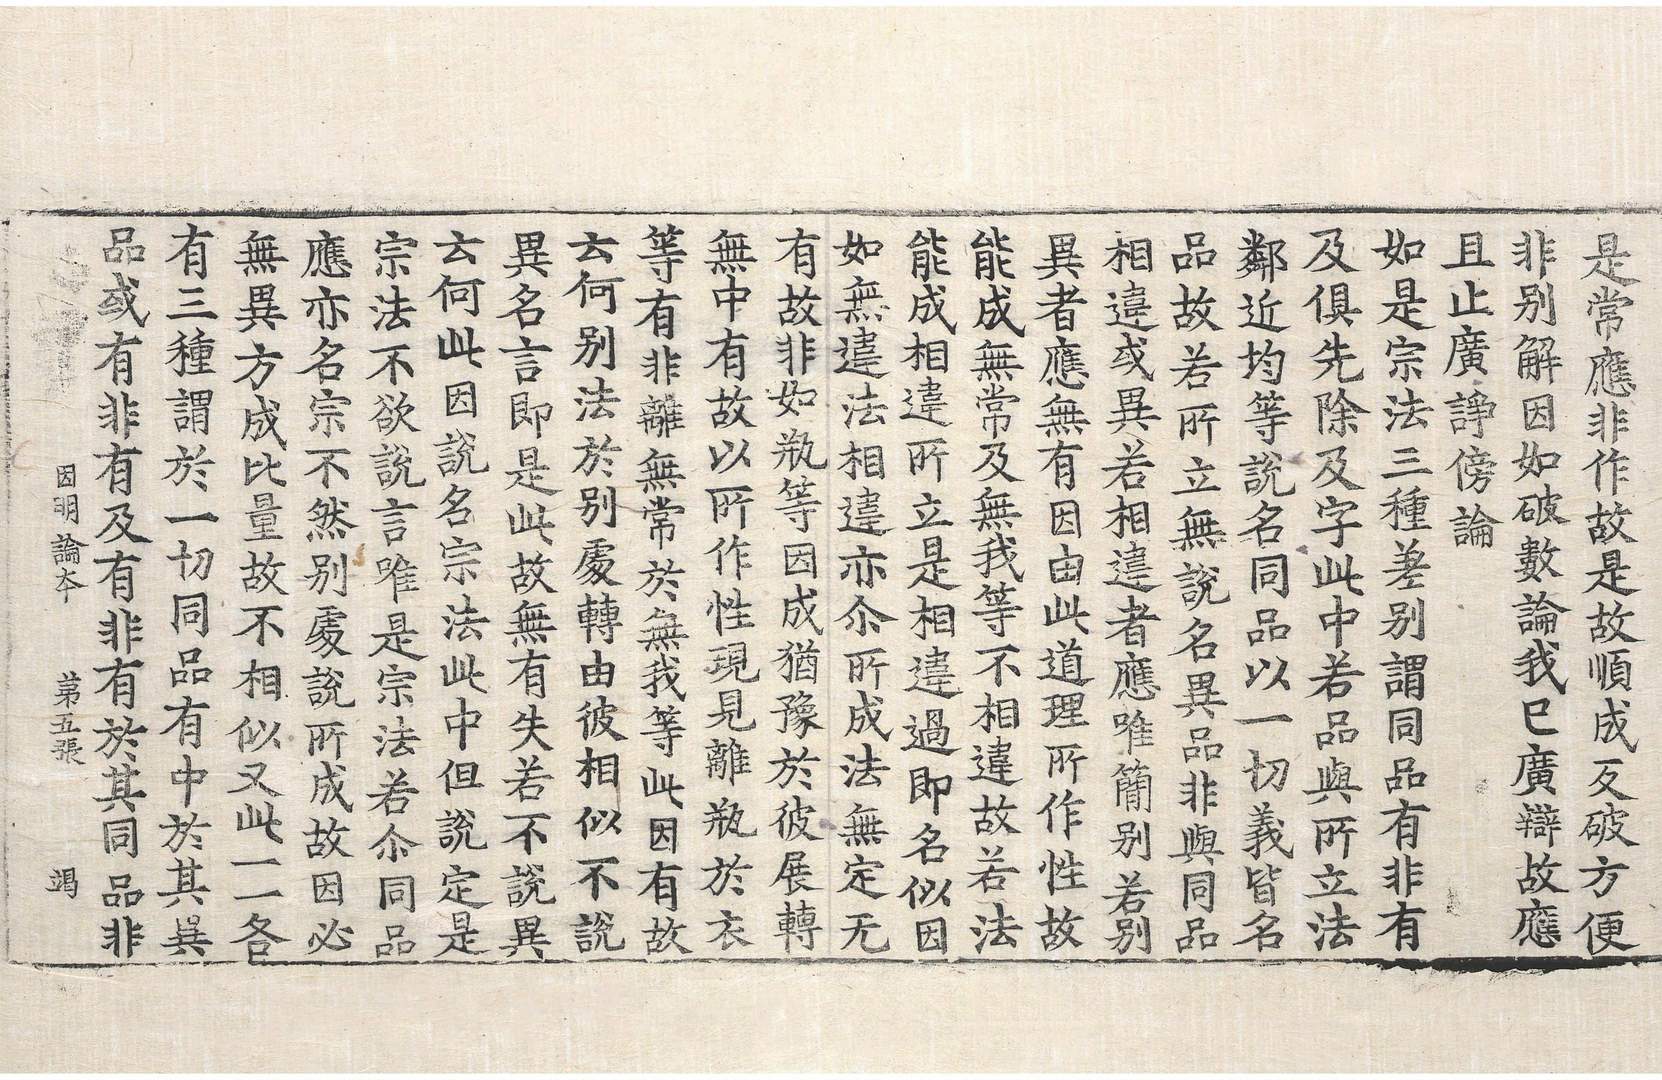 是常應非作故是故順成反破方便
非别解因如破數論我已廣辯故應
且止廣諍傍論
如是宗法三種差别謂同品有非有
及俱先除及字此中若品與所立法
鄰近均等說名同品以一切義皆名
品故若所立無說名異品非與同品
相違或異若相違者應唯簡别若别
異者應無有因由此道理所作性故
能成無常及無我等不相違故若法
能成相違所立是相違過即名似因
如無違法相違亦尒所成法無定无
有故非如瓶等因成猶豫於彼展轉
無中有故以所作性現見離瓶於衣
等有非離無常於無我等此因有故
云何别法於别處轉由彼相似不說
異名言即是此故無有失若不說異
云何此因說名宗法此中但說定是
宗法不欲說言唯是宗法若尒同品
應亦名宗不然别處說所成故因必
無異方成比量故不相似又此一一各
有三種謂於一切同品有中於其異
品或有非有及有非有於其同品非
因明論本　第五張　竭